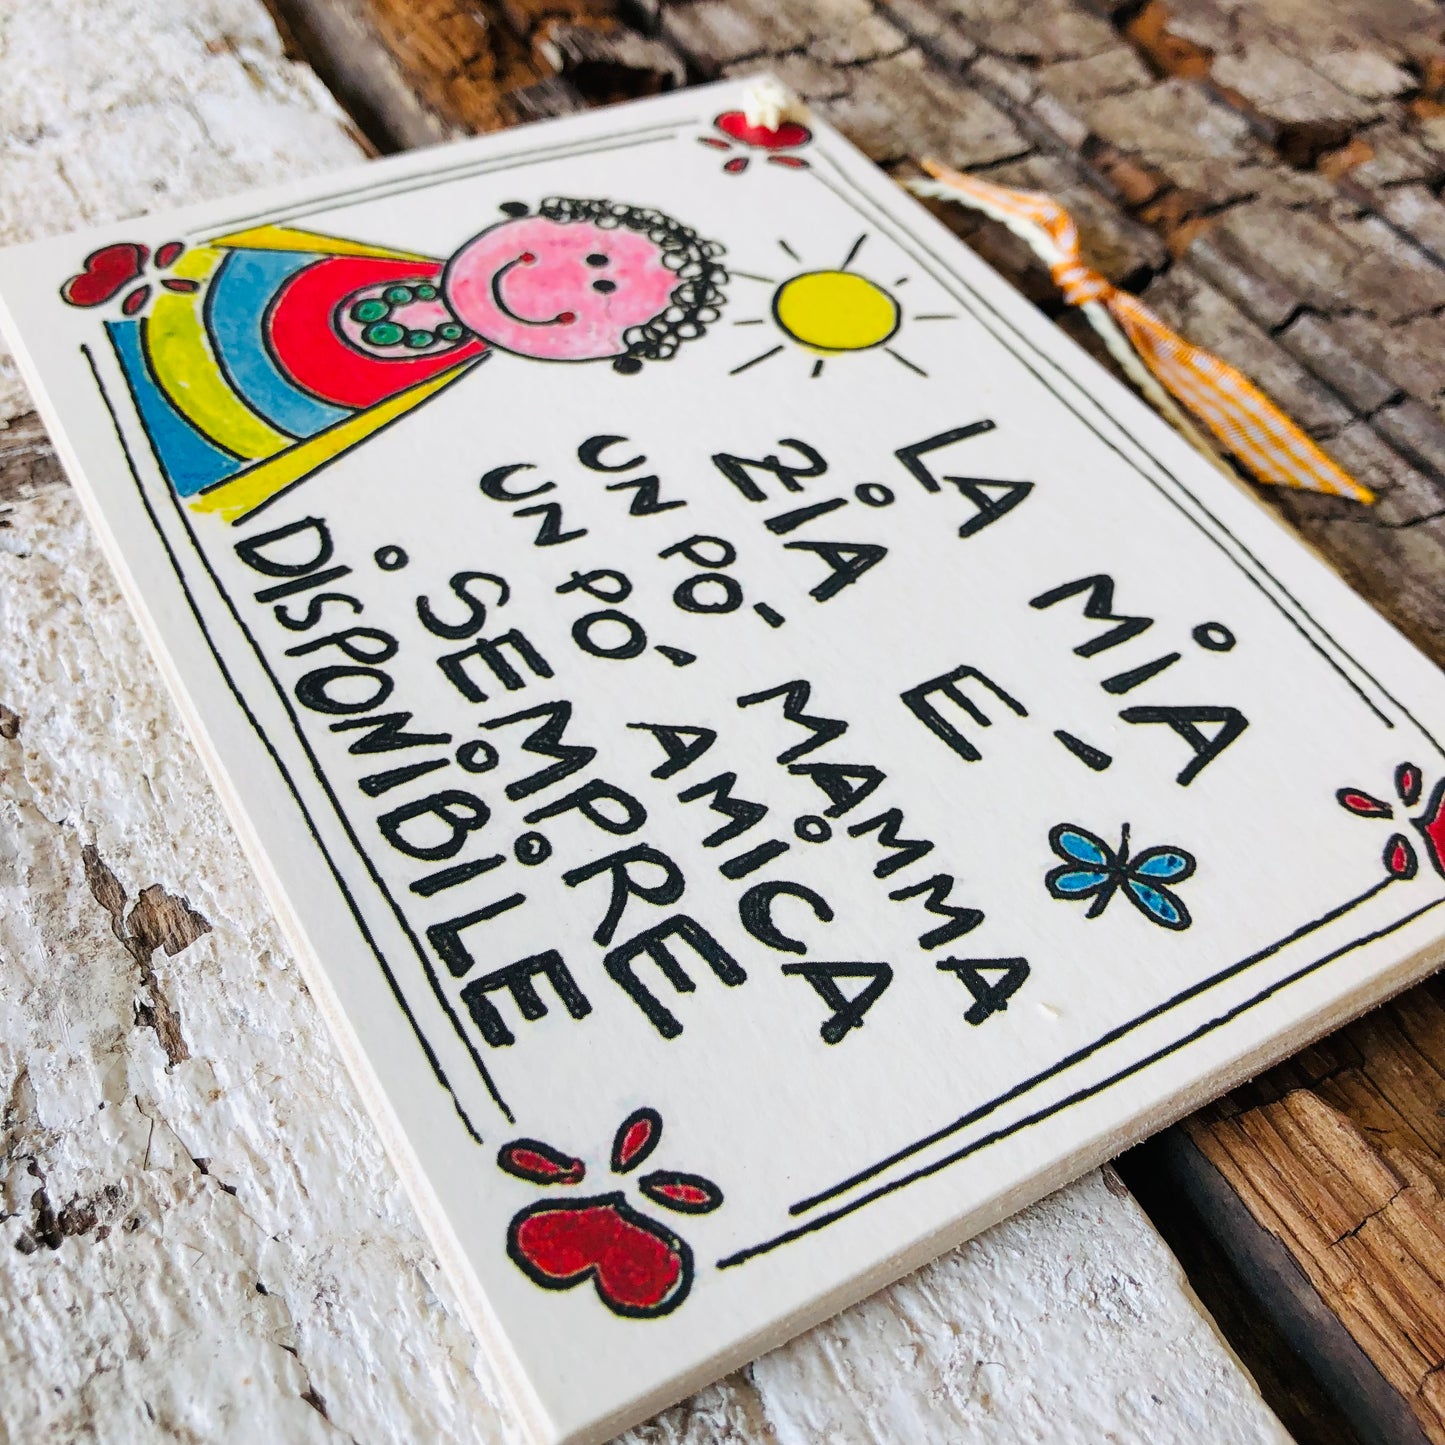 LA MIA
ZIA E'
UN PO' MAMMA
UN PO' AMICA
SEMPRE
DISPONIBILE